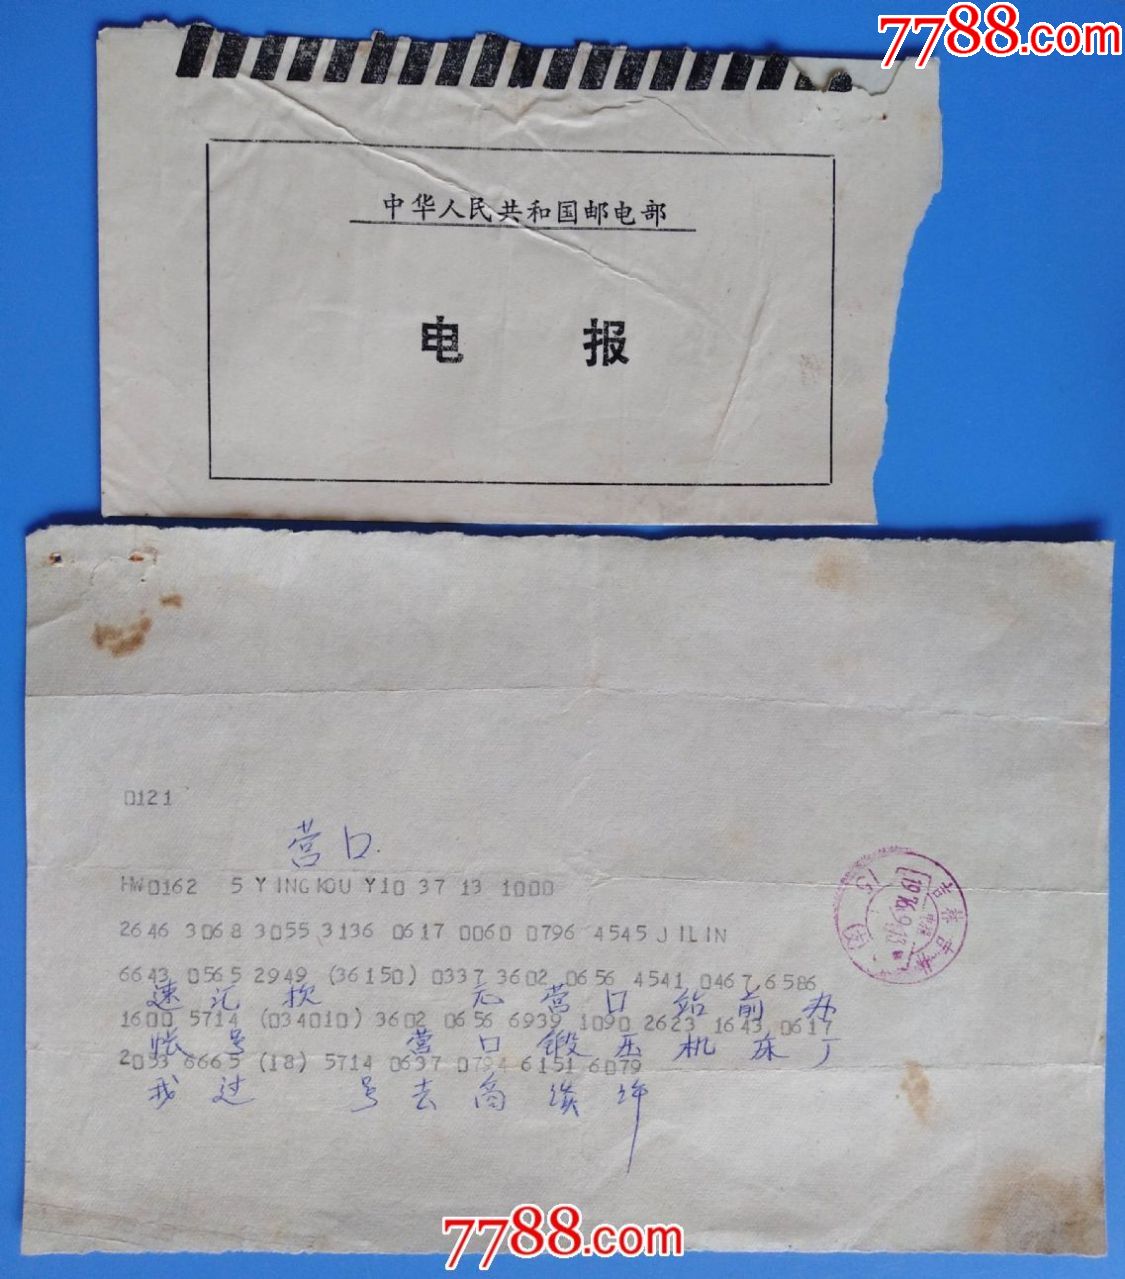 7788.com
中华人民共和国邮电部
电 报
0121
营口.
HW0162 5 YINGKOU Y10 37 13 1000
2646 3068 3055 3136 0617 0060 0796 4545 JILIN
6643 0565 2949 (36150) 0337 3602 0656 4541 0467 6586
速 汇 款 元 营 口 站 前 办
1600 5714 (034010) 3602 0656 6939 1090 2623 1643 0617
帐 号 营 口 锻 压 机 床 厂
2053 6665 (18) 5714 0637 0794 6151 6079
我 过 号 去 商 谈 详
吉林吉林
1976.9.13
15
7788.com